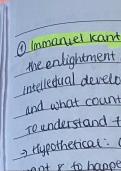 ① Immanuel Kant
the enlightment
intellectual develo
and what count
to understand t
→ Hypothetical: (
to happe